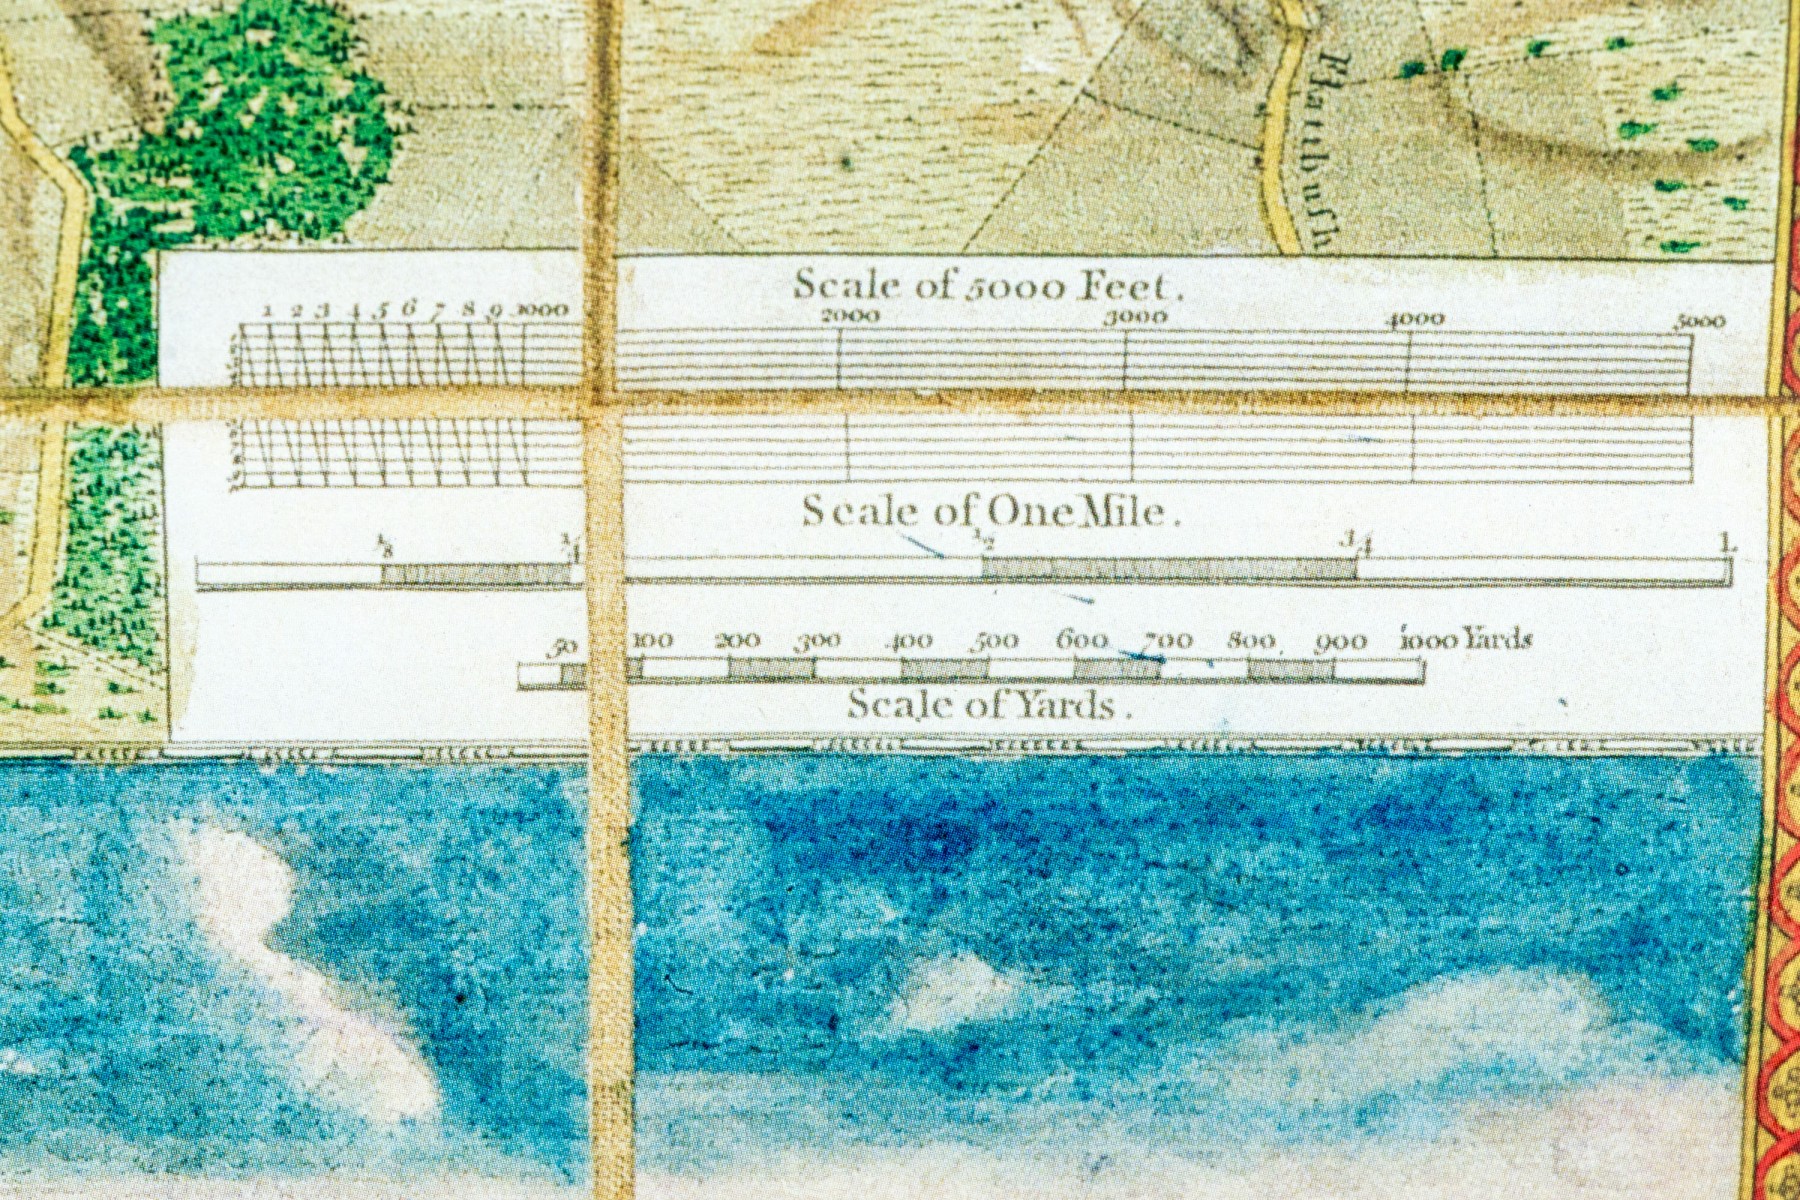 Flatbuſh
Scale of 5000 Feet.
1 2 3 4 5 6 7 8 9 1000 2000 3000 4000 5000
Scale of One Mile.
1/8 1/4 1/2 3/4 1.
50 100 200 300 400 500 600 700 800 900 1000 Yards
Scale of Yards.